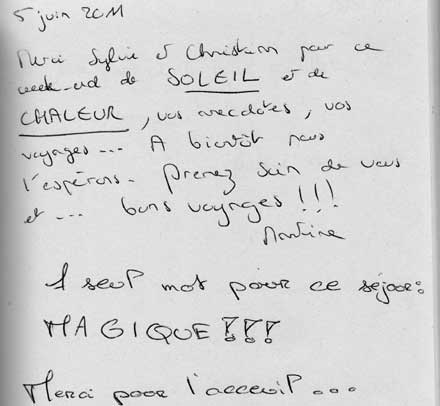 5 juin 2011
Merci Sylvie et Christian pour ce
week-end de SOLEIL et de
CHALEUR, vos anecdotes, vos
voyages... A bientôt nous
l'espérons. Prenez soin de vous
et ... bons voyages !!!
Martine
1 seul mot pour ce séjour:
MAGIQUE!!!
Merci pour l'accueil...